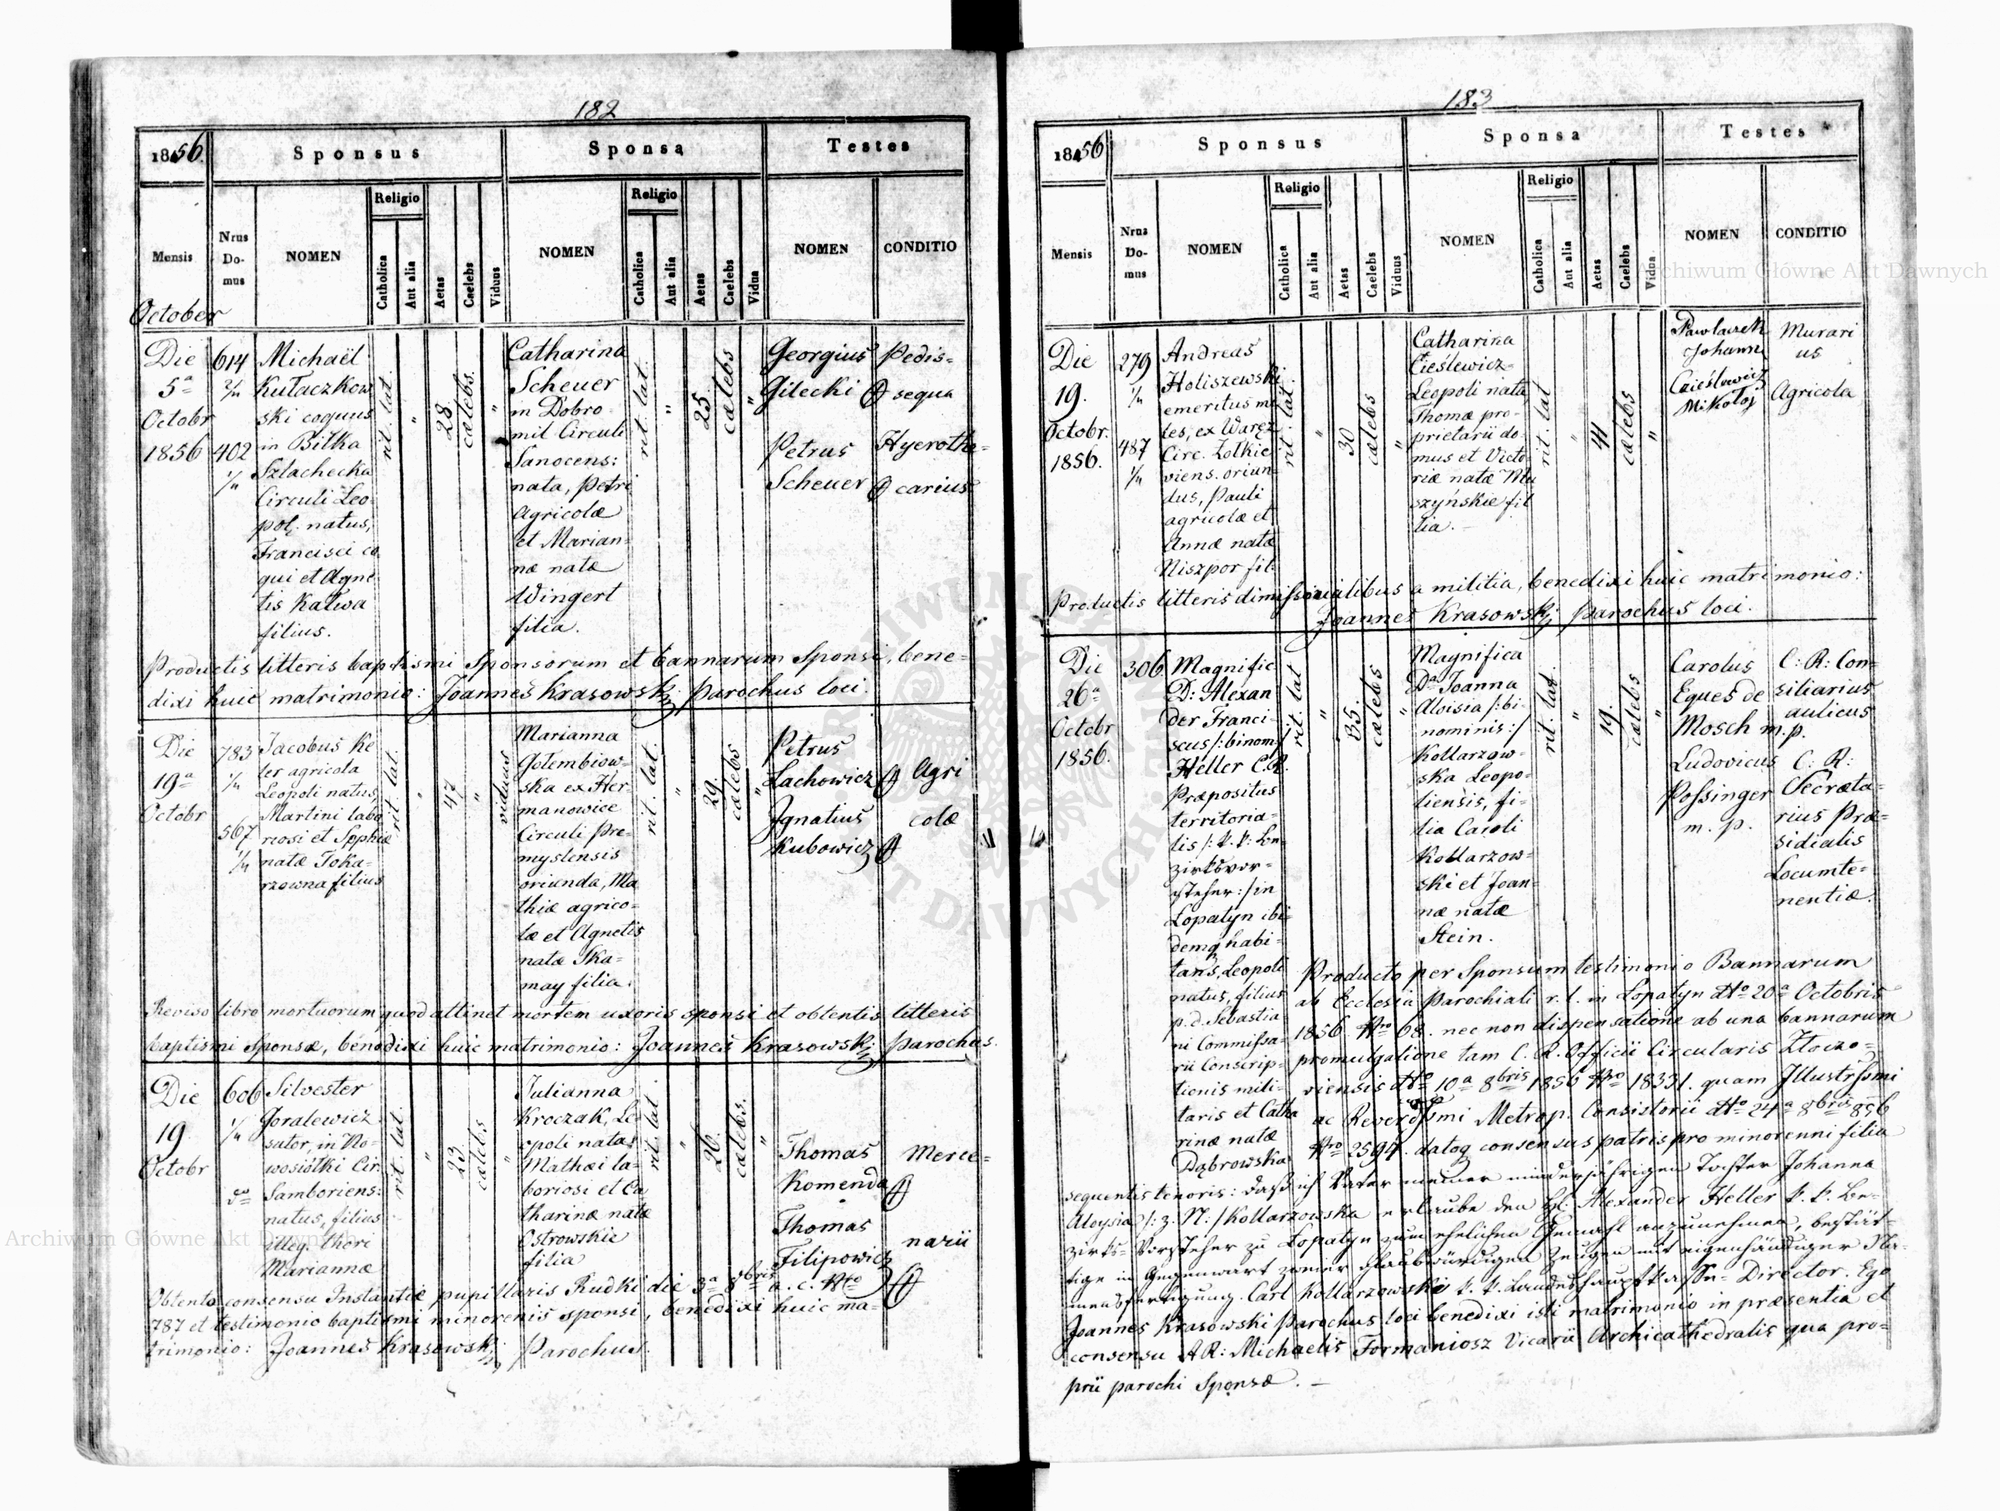 182
1856.
Sponsus
Sponsa
Testes
Mensis
Nrus Do-mus
NOMEN
Religio
Catholica
Aut alia
Aetas
Caelebs
Viduus
NOMEN
Religio
Catholica
Aut alia
Aetas
Caelebs
Vidua
NOMEN
CONDITIO
October
Die
5a
Octobr
1856
614
2/4
402
1/4
Michaël
Kutaczkow
ski coquus
in Bilka
Szlachecka
Circuli Leo
pol. natus,
Francisci co
qui et Agne
tis Kalwa
filius.
rit. lat.
"
28.
cælebs.
"
Catharina
Scheuer
in Dobro
mil Circuli
Sanocens:
nata, Petri
Agricolæ
et Marian-
næ natæ
Wingert
filia.
rit. lat.
"
25.
cælebs
"
Georgius
Gilecki
Petrus
Scheuer
Pedis=
sequa
Hyerothe=
carius
Productis litteris baptismi Sponsorum et bannarum Sponsi, bene=
dixi huic matrimonio: Joannes Krasowski parochus loci.
Die
19a
Octobr
783
1/4
567
1/4
Jacobus Ke
ler agricola
Leopoli natus,
Martini labo
riosi et Sophiæ
natæ Toka=
rzowna filius
rit. lat.
"
47
"
viduus
Marianna
Gołembiow=
ska ex Her
manowice
Circuli Pre=
myslensis
oriunda, Ma
thiæ agrico=
læ et Agnetis
natæ Ska=
may filia.
rit. lat.
"
29.
cælebs
"
Petrus
Lachowicz
Ignatius
Kubowicz
Agri
colæ
Reviso libro mortuorum quod attinet mortem uxoris sponsi et obtentis litteris
baptismi Sponsæ, benedixi huic matrimonio: Joannes Krasowski parochus.
Die
19
Octobr
606
1/4
do
Silvester
Goralewicz
sator, in No=
wosiółki Cir.
Samboriens:
natus, filius
illeg. thori
Mariannæ
rit. lat.
"
23
cælebs
"
Julianna
Kroczak, Le
opoli nata,
Mathæi la-
boriosi et Ca
tharinæ natæ
Ostrowskie
filia
rit. lat
"
26.
cælebs.
"
Thomas
Komenda
Thomas
Filipowicz
Merce=
narii
Obtento consensu Instantiæ pupillaris Rudki die 3a 8bris a. c. Nro
787 et testimonio baptismi minorenis sponsi, benedixi huic ma=
trimonio: Joannes Krasowski Parochus.
183
1856
Sponsus
Sponsa
Testes
Mensis
Nrus Do-mus
NOMEN
Religio
Catholica
Aut alia
Aetas
Caelebs
Viduus
NOMEN
Religio
Catholica
Aut alia
Aetas
Caelebs
Vidua
NOMEN
CONDITIO
Die
19.
Octobr.
1856.
279
1/4
487
1/4
Andreas
Holiszewski
emeritus mi
les, ex Waręz
Circ. Zolkie
viens. oriun
dus, Pauli
agricolæ et
Annæ natæ
Niszpor fil.
rit. lat.
"
30
cælebs
"
Catharina
Cieślewicz
Leopoli nata
Thomæ pro-
prietarii do-
mus et Victo
riæ natæ Mu
szyńskie fil
lia. -
rit. lat
"
41
cælebs
"
Pawlaczek
Johann
Czieślewicz
Mikołoj
Murari
us
Agricola
Productis litteris dimissorialibus a militia, benedixi huic matrimonio:
Joannes Krasowski parochus loci.
Die
26a
Octobr
1856.
306.
Magnific
D: Alexan
der Franci=
scus /: binom:/
Heller C.R.
Præpositus
territoria=
lis /: k. k. Be=
zirksvor=
steher:/ in
Lopatyn ibi=
demq habi=
tans, Leopoli
natus, filius
p. d. Sebastia
ni Commissa=
rii Conscrip=
tionis mili=
taris et Catha
rinæ natæ
Dąbrowska
rit. lat
"
35.
cælebs
"
Magnifica
Da Joanna
Aloisia /: bi=
nominis :/
Kollarzow=
ska Leopo=
liensis, fi=
lia Caroli
Kollarzow=
ski et Joan=
næ natæ
Stein.
rit. lat.
"
19.
cælebs
"
Carolus
Eques de
Mosch m.p.
Ludovicus
Possinger
m. p.
C: R: Con=
siliarius
aulicus
C: R:
Secreta=
rius Præ=
sidialis
Locumte=
nentiæ.
Producto per Sponsum testimonio Bannarum
ab Ecclesia Parochiali r. l. in Lopatyn dto 20a Octobris
1856 Nro 68. nec non dispensatione ab una bannarum
promulgatione tam C. R. Officii Circularis Zloczo=
viensis dto 10a 8bris 1856 Nro 18331. quam Illustrissmi
ac Reverdissmi Metrop. Consistorii dto 24a 8bris 856
Nro 2594. datoq consensus patris pro minorenni filia
sequentis tenoris: Daß ich Vater meiner minderjährigen Tochter Johanna
Aloysia /: z. N:/ Kollarzowska erlaube den H: Alexander Heller k. k. Be=
zirks=Vorsteher zu Lopatyn zum ehelichen Gemahl anzunehmen, bestät=
tige in Gegenwart zweier glaubwürdigen Zeugen mit eigenhändiger Na=
mensfertigung. Carl Kollarzowski k. k. Landeshauptkassen=Director. Ego
Joannes Krasowski Parochus loci benedixi isti matrimonio in præsentia et
consensu AR: Michaelis Formaniosz Vicarii Archicathedralis qua pro=
prii parochi Sponsæ. -
Archiwum Główne Akt Dawnych
Archiwum Główne Akt Dawnych
ARCHIWUM GŁÓWNE AKT DAWNYCH